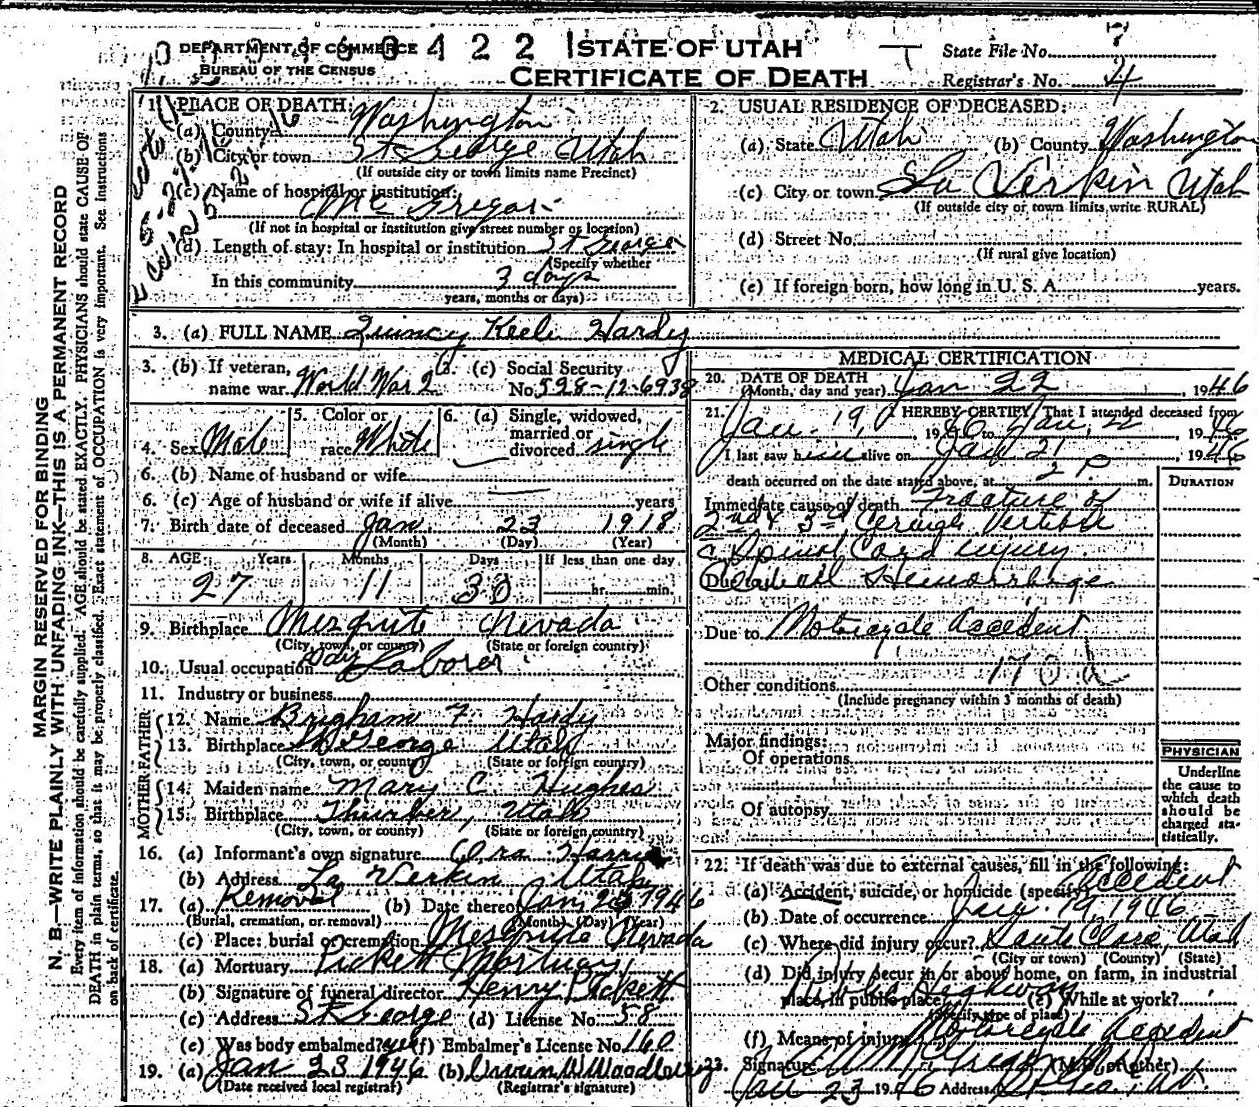 DEPARTMENT OF COMMERCE
BUREAU OF THE CENSUS
0422
STATE OF UTAH
CERTIFICATE OF DEATH
State File No. 7
Registrar's No. 4
MARGIN RESERVED FOR BINDING
N. B.—WRITE PLAINLY WITH UNFADING INK—THIS IS A PERMANENT RECORD
Every item of information should be carefully supplied. AGE should be stated EXACTLY. PHYSICIANS should state CAUSE OF
DEATH in plain terms, so that it may be properly classified. Exact statement of OCCUPATION is very important. See instructions
on back of certificate.
1. PLACE OF DEATH:
(a) County Washington
(b) City or town St George Utah
(If outside city or town limits name Precinct)
(c) Name of hospital or institution:
McGregor
(If not in hospital or institution give street number or location)
(d) Length of stay: In hospital or institution St George
(Specify whether
In this community 3 days
years, months or days)
2. USUAL RESIDENCE OF DECEASED:
(a) State Utah (b) County Washington
(c) City or town La Verkin Utah
(If outside city or town limits, write RURAL)
(d) Street No.
(If rural give location)
(e) If foreign born, how long in U. S. A. years.
3. (a) FULL NAME Quincy Keele Hardy
3. (b) If veteran, name war World War 2
3. (c) Social Security No. 528-12-6938
4. Sex Male
5. Color or race White
6. (a) Single, widowed, married or divorced single
6. (b) Name of husband or wife
6. (c) Age of husband or wife if alive years
7. Birth date of deceased Jan 23 1918
(Month) (Day) (Year)
8. AGE Years Months Days If less than one day
27 11 30 hr. min.
9. Birthplace Mesquite Nevada
(City, town, or county) (State or foreign country)
10. Usual occupation Day Laborer
11. Industry or business
FATHER
12. Name Brigham F. Hardy
13. Birthplace St George Utah
(City, town, or county) (State or foreign country)
MOTHER
14. Maiden name Mary C Hughes
15. Birthplace Thurber, Utah
(City, town, or county) (State or foreign country)
16. (a) Informant's own signature Ora Harris
(b) Address La Verkin Utah
17. (a) Removal (b) Date thereof Jan 23 1946
(Burial, cremation, or removal) (Month) (Day) (Year)
(c) Place: burial or cremation Mesquite Nevada
18. (a) Mortuary Pickett Mortuary
(b) Signature of funeral director Henry Pickett
(c) Address St George (d) License No. 58
(e) Was body embalmed? yes (f) Embalmer's License No. 160
19. (a) Jan 23 1946 (b) Woodbury
(Date received local registrar) (Registrar's signature)
MEDICAL CERTIFICATION
20. DATE OF DEATH
(Month, day and year) Jan 22, 1946
21. I HEREBY CERTIFY, That I attended deceased from
Jan. 19, 1946 to Jan, 22 1946
I last saw him alive on Jan 21 1946
death occurred on the date stated above, at 2 P. m.
DURATION
Immediate cause of death Fracture of
2nd & 3rd Cervical Vertebae
c Spinal Cord injury.
Due to Hemorrhage
Due to Motorcycle Accident
170 d
Other conditions
(Include pregnancy within 3 months of death)
Major findings:
Of operations
Of autopsy
PHYSICIAN
Underline
the cause to
which death
should be
charged sta-
tistically.
22. If death was due to external causes, fill in the following:
(a) Accident, suicide, or homicide (specify) Accident
(b) Date of occurrence Jan. 19, 1946
(c) Where did injury occur? Santa Clara, Utah
(City or town) (County) (State)
(d) Did injury occur in or about home, on farm, in industrial
place, in public place? Public Highway (e) While at work?
(Specify type of place)
(f) Means of injury Motorcycle Accident
23. Signature McGregor (M.D. or other)
Jan 23 1946 Address St Geo. Ut.